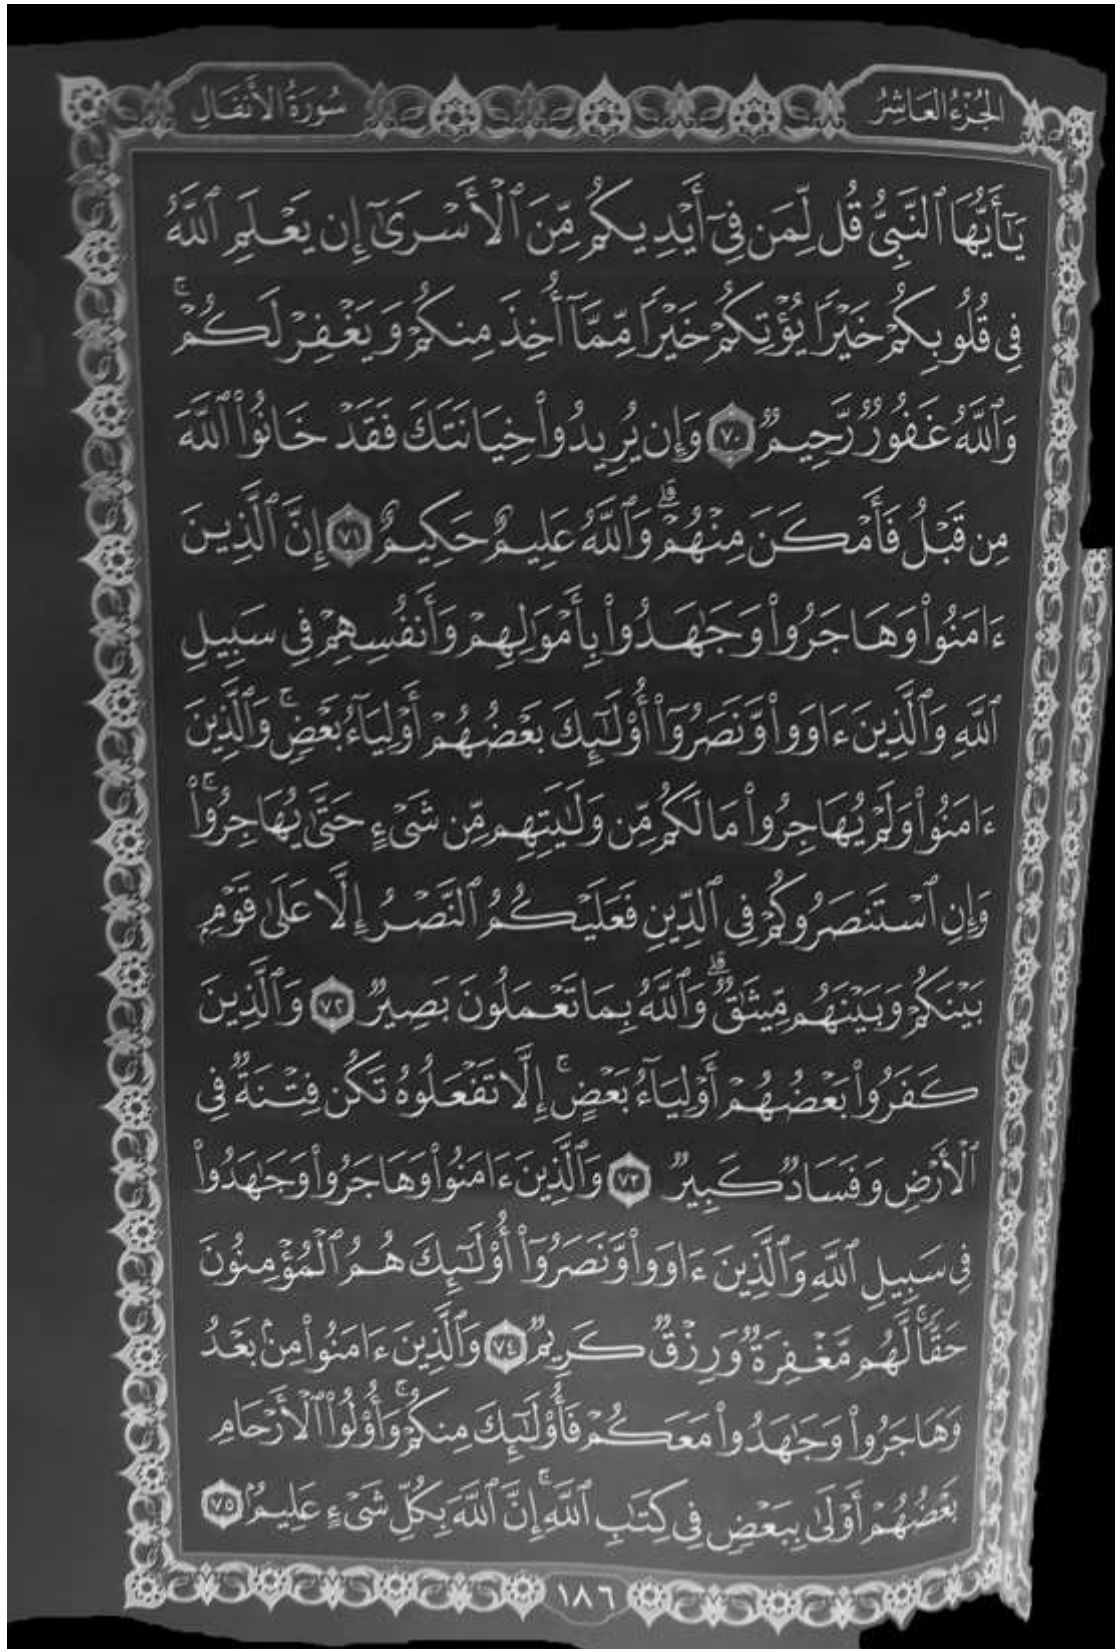 الجُزْءُ العَاشِرُ
سُورَةُ الأَنفَالِ
يَٰٓأَيُّهَا ٱلنَّبِىُّ قُل لِّمَن فِىٓ أَيْدِيكُم مِّنَ ٱلْأَسْرَىٰٓ إِن يَعْلَمِ ٱللَّهُ
فِى قُلُوبِكُمْ خَيْرًا يُؤْتِكُمْ خَيْرًا مِّمَّآ أُخِذَ مِنكُمْ وَيَغْفِرْ لَكُمْ ۚ
وَٱللَّهُ غَفُورٌ رَّحِيمٌ ٧٠ وَإِن يُرِيدُوا۟ خِيَانَتَكَ فَقَدْ خَانُوا۟ ٱللَّهَ
مِن قَبْلُ فَأَمْكَنَ مِنْهُمْ ۗ وَٱللَّهُ عَلِيمٌ حَكِيمٌ ٧١ إِنَّ ٱلَّذِينَ
ءَامَنُوا۟ وَهَاجَرُوا۟ وَجَٰهَدُوا۟ بِأَمْوَٰلِهِمْ وَأَنفُسِهِمْ فِى سَبِيلِ
ٱللَّهِ وَٱلَّذِينَ ءَاوَوا۟ وَّنَصَرُوٓا۟ أُو۟لَٰٓئِكَ بَعْضُهُمْ أَوْلِيَآءُ بَعْضٍ ۚ وَٱلَّذِينَ
ءَامَنُوا۟ وَلَمْ يُهَاجِرُوا۟ مَا لَكُم مِّن وَلَٰيَتِهِم مِّن شَىْءٍ حَتَّىٰ يُهَاجِرُوا۟ ۚ
وَإِنِ ٱسْتَنصَرُوكُمْ فِى ٱلدِّينِ فَعَلَيْكُمُ ٱلنَّصْرُ إِلَّا عَلَىٰ قَوْمٍ
بَيْنَكُمْ وَبَيْنَهُم مِّيثَٰقٌ ۗ وَٱللَّهُ بِمَا تَعْمَلُونَ بَصِيرٌ ٧٢ وَٱلَّذِينَ
كَفَرُوا۟ بَعْضُهُمْ أَوْلِيَآءُ بَعْضٍ ۚ إِلَّا تَفْعَلُوهُ تَكُن فِتْنَةٌ فِى
ٱلْأَرْضِ وَفَسَادٌ كَبِيرٌ ٧٣ وَٱلَّذِينَ ءَامَنُوا۟ وَهَاجَرُوا۟ وَجَٰهَدُوا۟
فِى سَبِيلِ ٱللَّهِ وَٱلَّذِينَ ءَاوَوا۟ وَّنَصَرُوٓا۟ أُو۟لَٰٓئِكَ هُمُ ٱلْمُؤْمِنُونَ
حَقًّا ۚ لَّهُم مَّغْفِرَةٌ وَرِزْقٌ كَرِيمٌ ٧٤ وَٱلَّذِينَ ءَامَنُوا۟ مِنۢ بَعْدُ
وَهَاجَرُوا۟ وَجَٰهَدُوا۟ مَعَكُمْ فَأُو۟لَٰٓئِكَ مِنكُمْ ۚ وَأُو۟لُوا۟ ٱلْأَرْحَامِ
بَعْضُهُمْ أَوْلَىٰ بِبَعْضٍ فِى كِتَٰبِ ٱللَّهِ ۚ إِنَّ ٱللَّهَ بِكُلِّ شَىْءٍ عَلِيمٌۢ ٧٥
١٨٦